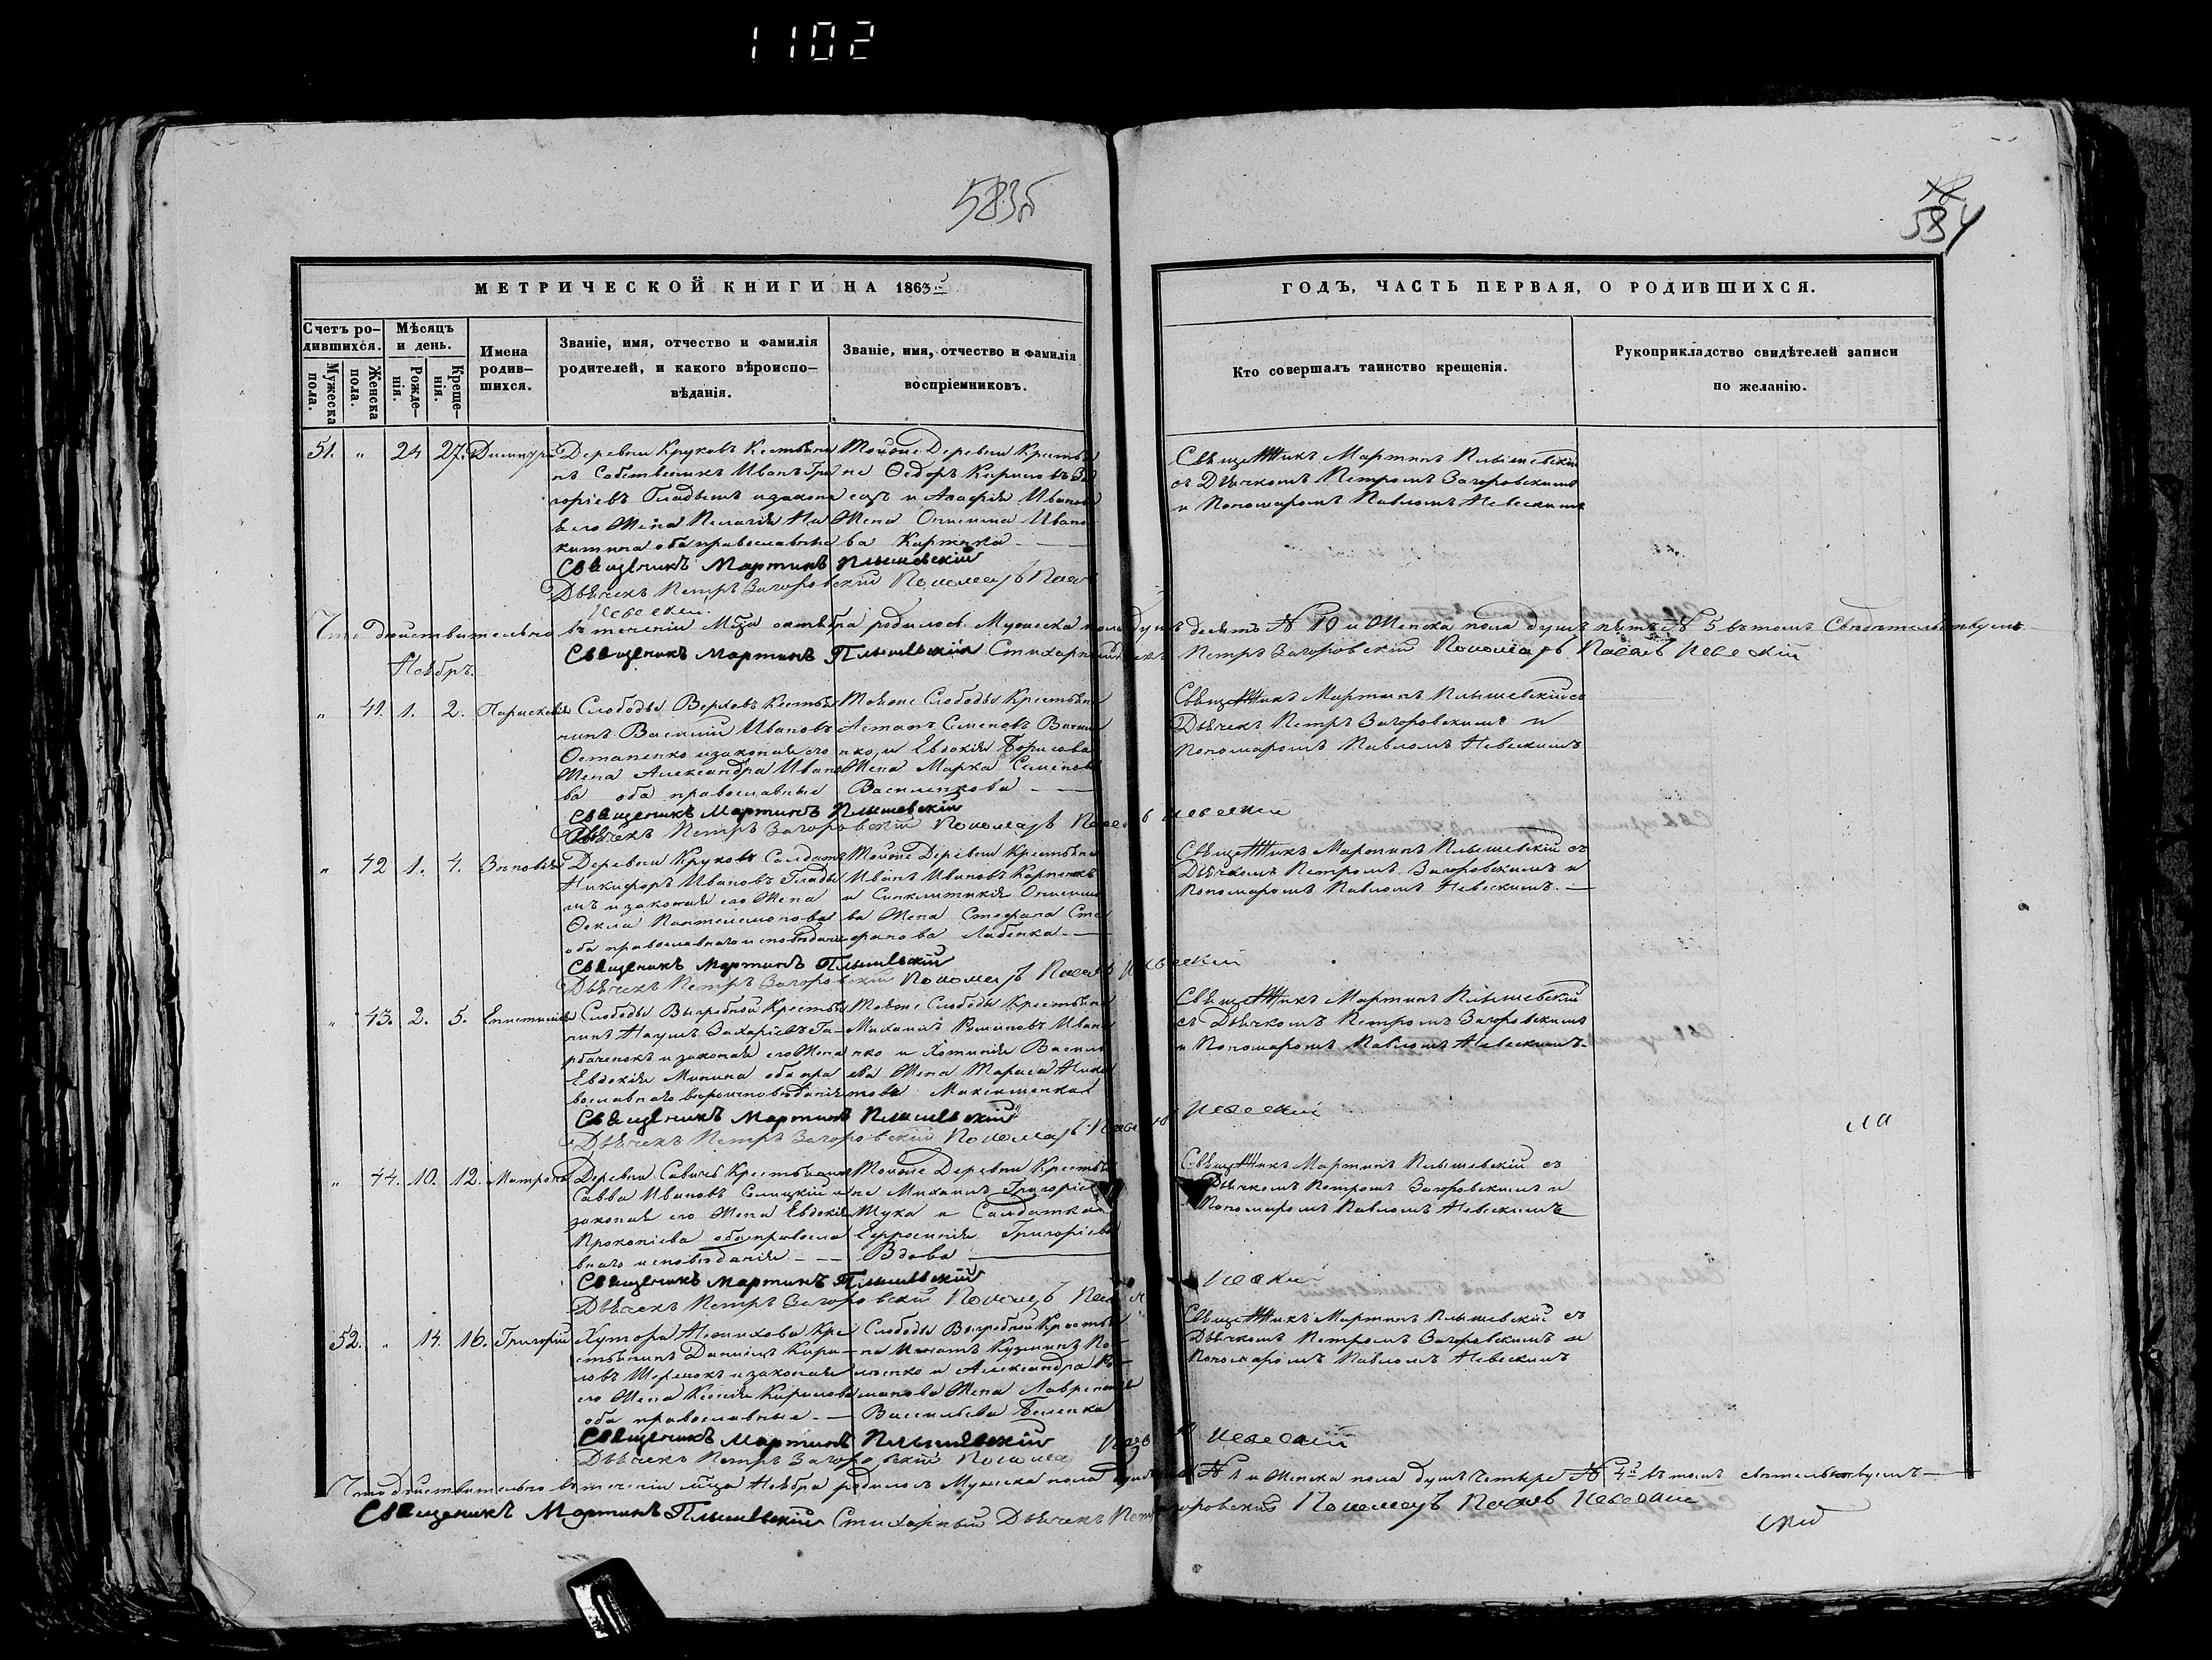 1102
583б
584
МЕТРИЧЕСКОЙ КНИГИ НА 1863й
ГОДЪ, ЧАСТЬ ПЕРВАЯ, О РОДИВШИХСЯ.
Счетъ ро-
дившихся.
Мужеска
пола.
Женска
пола.
Мѣсяцъ
и день.
Рожде-
нія.
Креще-
нія.
Имена
родив-
шихся.
Званіе, имя, отчество и фамилія
родителей, и какого вѣроиспо-
вѣданія.
Званіе, имя, отчество и фамилія
воспріемниковъ.
Кто совершалъ таинство крещенія.
Рукоприкладство свидѣтелей записи
по желанію.
51. " 24 27. Димитрій
Деревни Круковъ
Собственикъ Иванъ Гри
горіевъ Гладышъ изакона
его Жена Пелагія Ни
китина оба православные
Тойже Деревни Крестья
не Федоръ Кириловъ
и Агафія Иванова
Жена Онисима Ивано
ва Коржика
Священикъ Мартинъ Плышевскій
съ Дьячкомъ Петромъ Загоровскимъ
и Пономаромъ Павломъ Невескимъ
Священикъ Мартинъ Плышевскій
Дьячекъ Петръ Загоровскій Пономарь Павелъ
Невескій
Что дѣйствительно въ теченіи Мца октября родилось Мужеска пола душъ десять № 10 и Женска пола душъ пять № 5 въ томъ Свидѣтельствуемъ
Священикъ Мартинъ Плышевскій Стихарный Дьячекъ Петръ Загоровскій Пономарь Павелъ Невескій
Ноябрь.
" 41. 1. 2. Параскевія
Слободы Верховъ Крестья
нинъ Василій Ивановъ
Остапенко изаконая его
Жена Александра Ивано
ва оба православные
Тойже Слободы Крестьяне
Астапъ Семеновъ Васил
нко, и Евдокія Борисова
Жена Марка Семенова
Василенкова
Священикъ Мартинъ Плышевскій съ
Дьячек Петръ Загоровскимъ и
Пономаромъ Павломъ Невескимъ
Священикъ Мартинъ Плышевскій
Дьячекъ Петръ Загоровскій Пономарь Павелъ Невескій
" 42 1. 4. Зѣновія
Деревни Круковъ Салдатъ
Никифоръ Ивановъ Глады
шъ изаконая его Жена
Фекла Пантелемонова
оба православнаго исповѣданія
Тойже Деревни Крестьяне
Иванъ Ивановъ
и Синклитикія Онисимо
ва Жена Стефана Сте
фанова Лабенка
Священикъ Мартинъ Плышевскій съ
Дьячкомъ Петромъ Загоровскимъ и
Пономаромъ Павломъ Невескимъ
Священикъ Мартинъ Плышевскій
Дьячекъ Петръ Загоровскій Пономарь Павелъ Невескій
" 43. 2. 5. Епистимія
Слободы Выгребной Крестья
нинъ Наумъ Захаріевъ Го
рбаченокъ изаконая его Жена
Евдокія Минина оба пра
вославнаго вѣроисповѣданія
Тойже Слободы Крестьяне
Михаилъ Романовъ Ивано
нко и Хотинія Василь
ева Жена Тараса Ники
това Максименка
Священикъ Мартинъ Плышевскій
съ Дьячкомъ Петромъ Загоровскимъ
и Пономаромъ Павломъ Невескимъ
Священикъ Мартинъ Плышевскій
Дьячекъ Петръ Загоровскій Пономарь Павелъ Невескій
" 44. 10. 12. Матрона
Деревни Савичъ Крестьянинъ
Савва Ивановъ и
законая его Жена Евдокія
Прокопіева оба правосла
внаго исповѣданія
Тойже Деревни Крестья
не Михаилъ Григоріевъ
Жука и Салдатка
Евросинія Григоріева
Вдова
Священикъ Мартинъ Плышевскій съ
Дьячкомъ Петромъ Загоровскимъ и
Пономаромъ Павломъ Невескимъ
Священикъ Мартинъ Плышевскій
Дьячекъ Петръ Загоровскій Пономарь Невскій
52. " 14. 16. Григорій
Хутора Кре
стьянинъ Даніилъ Кири
ловъ изаконая
его Жена Ксенія Кирилова
оба православные.
Слободы Выгребной Крестья
не Игнатъ Кузминъ
и Александра Ро
манова Жена Лаврентія
Васильева Беленка
Священикъ Мартинъ Плышевскій съ
Дьячкомъ Петромъ Загоровскимъ и
Пономаромъ Павломъ Невескимъ
Священикъ Мартинъ Плышевскій
Дьячекъ Петръ Загоровскій Невескій
Что дѣйствительно въ теченіи мца Ноября родилось Мужеска пола № 1 и Женска пола душъ четыре № 4 въ томъ свѣтельствуемъ
Священикъ Мартинъ Плышевскій Стихарный Дьячекъ Петръ Загоровскій Пономарь Павелъ Невескій